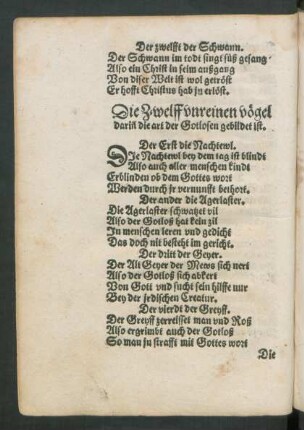 Der zwelfft der Schwann.
Der Schwann im todt singt süß gesang
Also ein Christ in seim außgang
Von diser Welt ist wol getröst
Er hofft Christus hab jn erlöst.
Die Zwelff vnreinen vögel
dariñ die art der Gotlosen gebildet ist.
Der Erst die Nachtewl.
Die Nachtewl bey dem tag ist blindt
Also auch aller menschen kindt
Erblinden ob dem Gottes wort
Werden durch jr vernunfft bethort.
Der ander die Agerlaster.
Die Agerlaster schwatzt vil
Also der Gotloß hat kein zil
In menschen leren vnd gedicht
Das doch nit besteht im gericht.
Der drit der Geyer.
Der Alt Geyer der Mews sich nert
Also der Gotloß sich abkert
Von Gott vnd sucht sein hilffe nur
Bey der jrdischen Creatur.
Der vierdt der Greyff.
Der Greyff zerreisset man vnd Roß
Also ergrimbt auch der Gotloß
So man jn strafft mit Gottes wort
Die